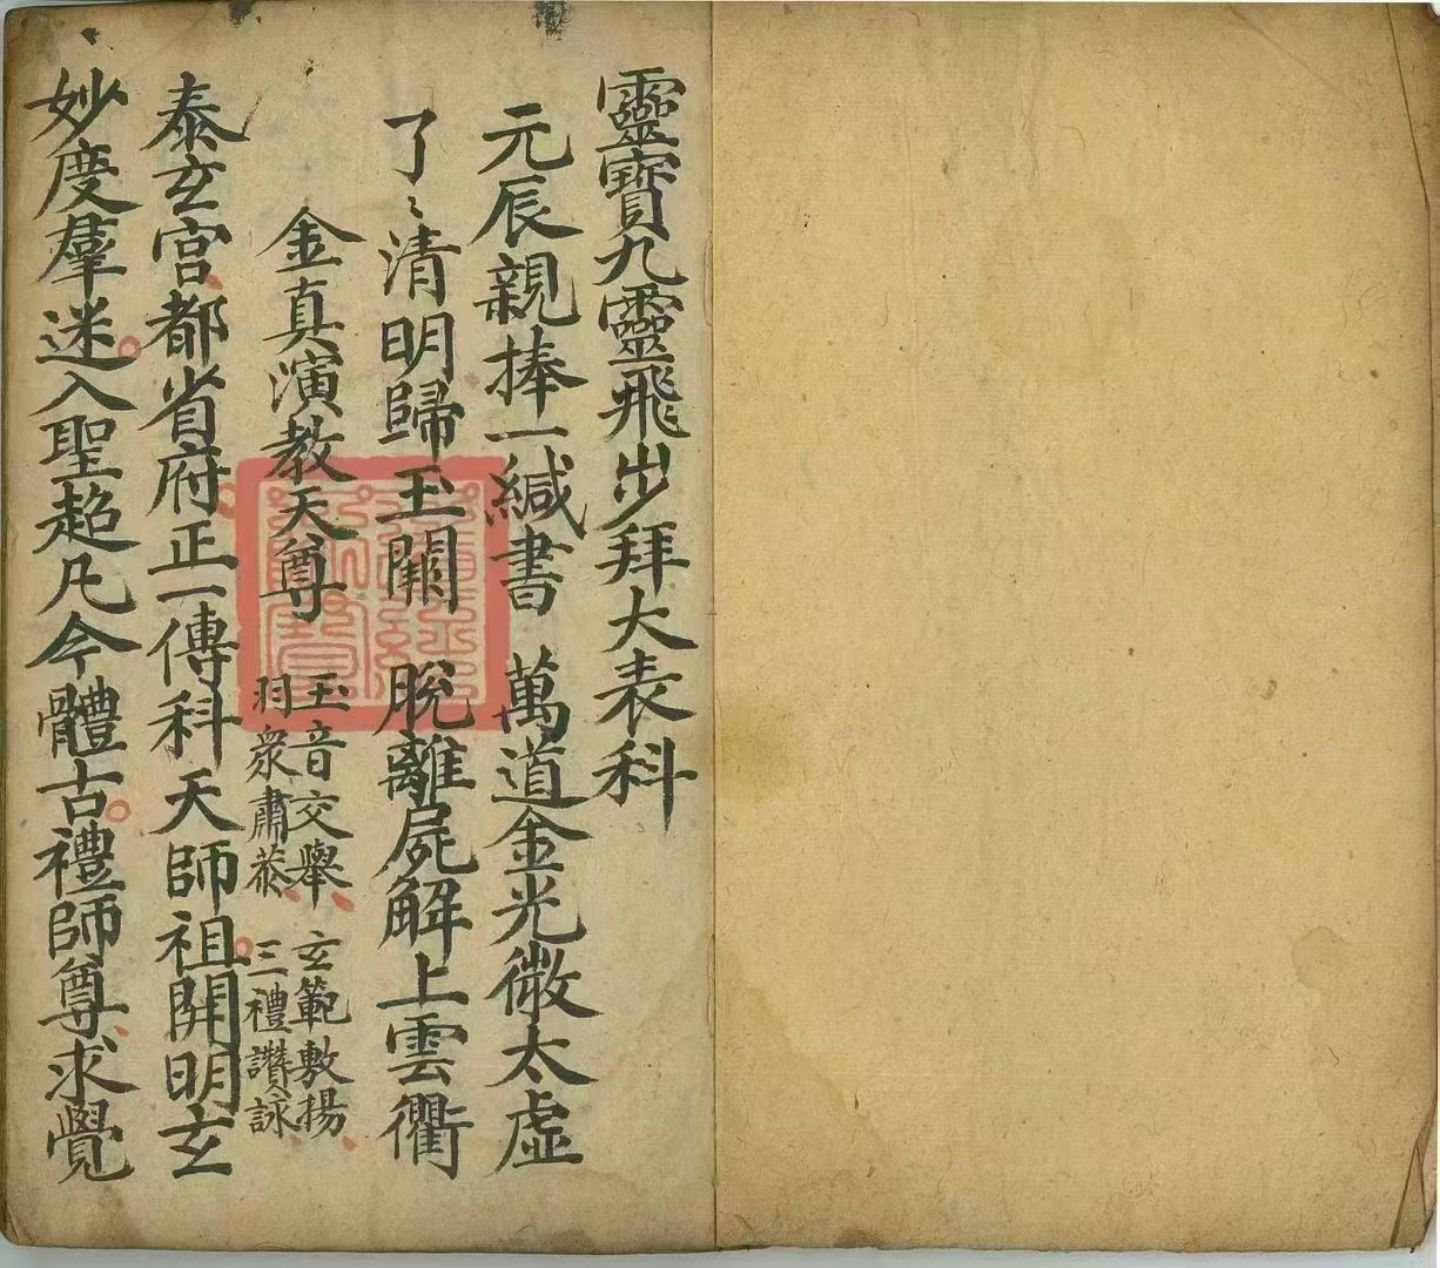 靈寶九靈飛步拜大表科
元辰親捧一緘書 萬道金光徹太虛
了〻清明歸玉闕 脫離屍解上雲衢
金真演教天尊
玉音交舉
羽衆肅恭
玄範敷揚
三禮讚詠
泰玄宮都省府正一傳科天師祖開明玄
妙度羣迷入聖超凡今體古禮師尊求覺